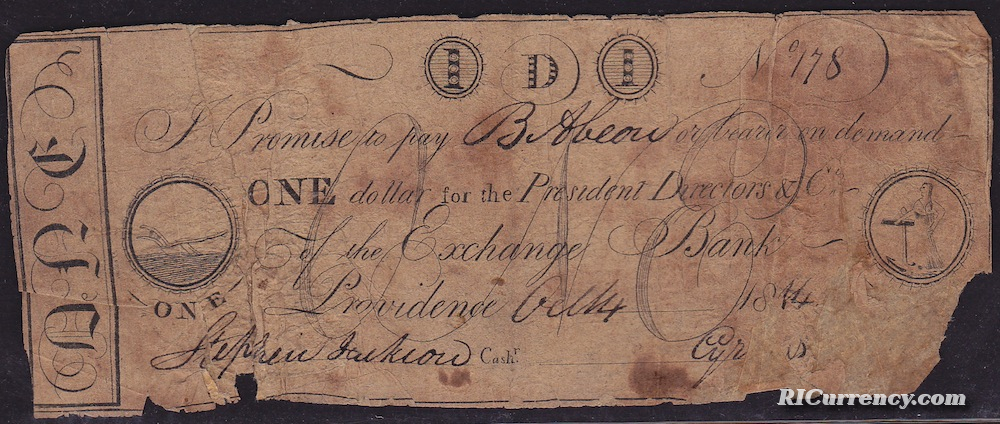 ONE
1 D 1
No 178
I Promise to pay B Abeon or bearer on demand
ONE dollar for the President Directors & Co
of the Exchange Bank
ONE
Providence Oct 4 1814
Stephen Jackson Cashr.
RICurrency.com